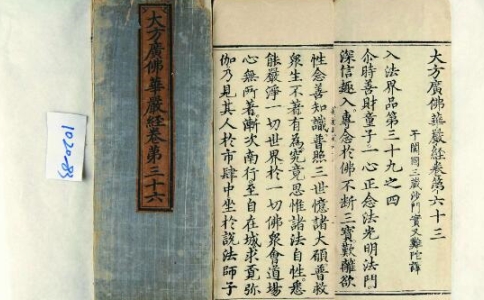 大方廣佛華嚴經卷第三十六
大方廣佛華嚴經卷第六十三
于闐國三藏沙門實叉難陀譯
入法界品第三十九之四
尒時善財童子一心正念法光明法門
深信趣入專念於佛不斷三寶歎離欲
性念善知識普照三世憶諸大願普救
衆生不著有為究竟思惟諸法自性悉
能嚴淨一切世界於一切佛衆會道場
心無所著漸次南行至自在城求覓彌
伽乃見其人於市肆中坐於說法師子